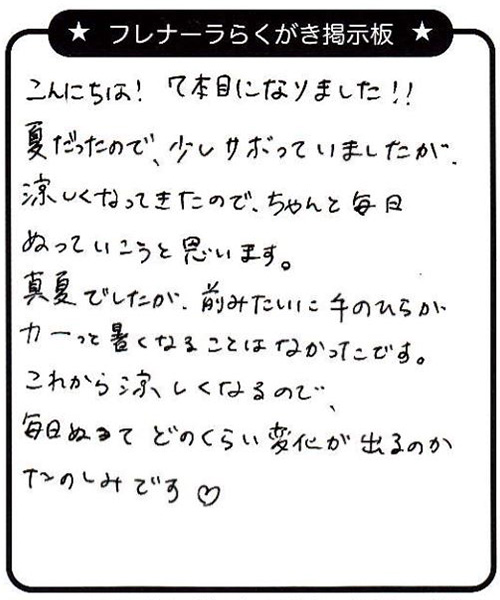 ★ フレナーラらくがき掲示板 ★
こんにちは! 7本目になりました!!
夏だったので、少しサボっていましたが、
涼しくなってきたので、ちゃんと毎日
ぬっていこうと思います。
真夏でしたが、前みたいに手のひらが
カーっと暑くなることはなかったです。
これから涼しくなるので、
毎日ぬって どのくらい変化が出るのか
たのしみです♡